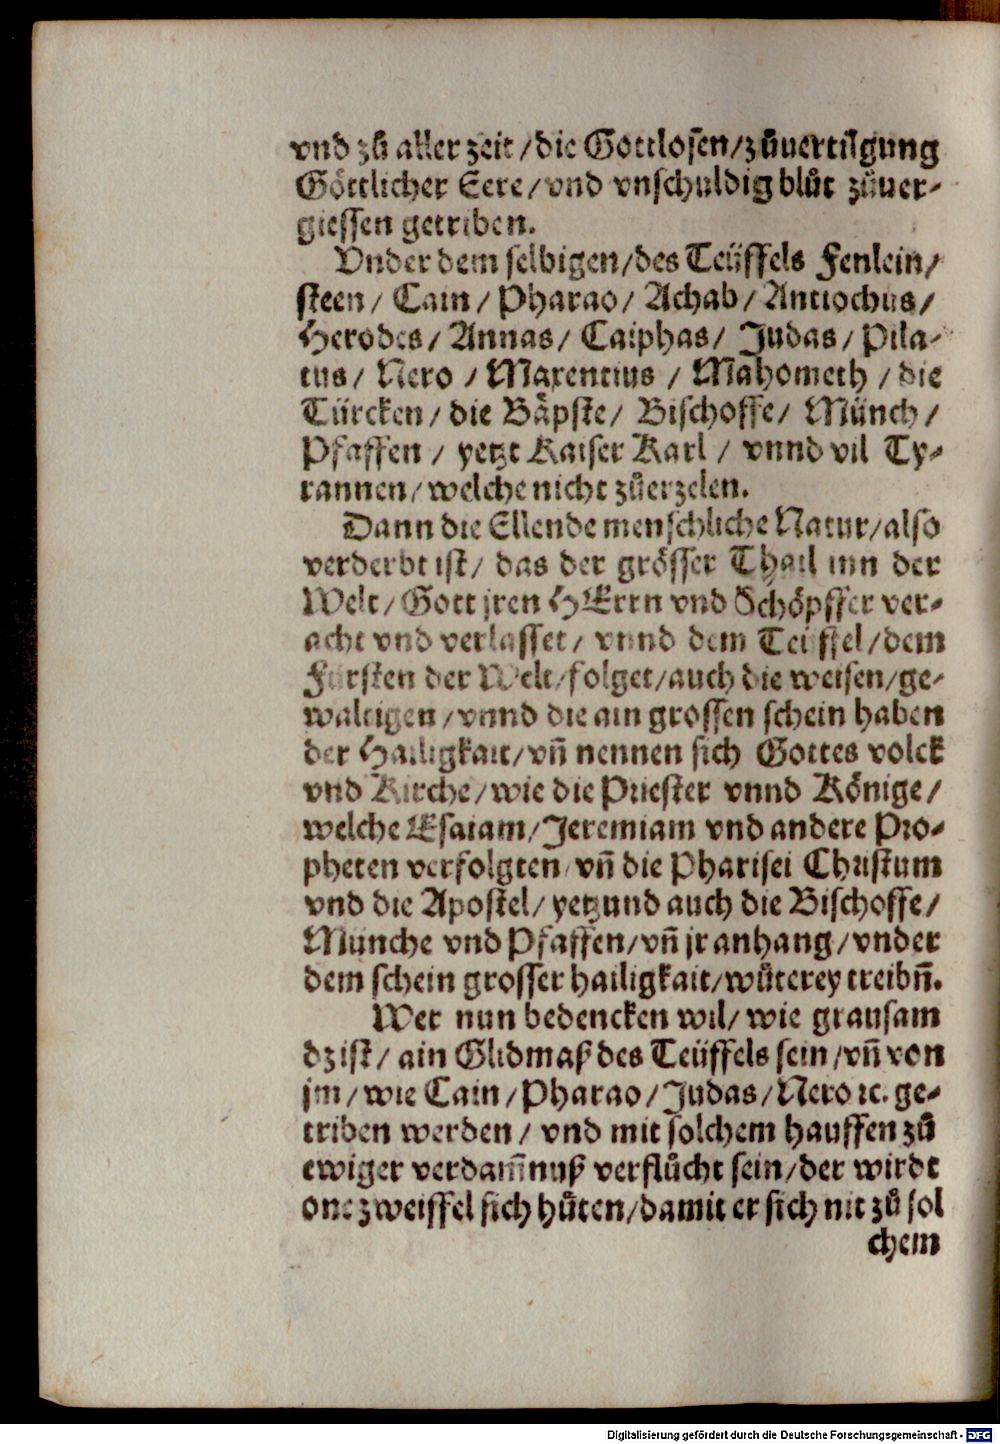 vnd zů aller zeit/die Gottlosen/zůuertilgung
Göttlicher Eere/vnd vnschuldig blůt zůuer-
giessen getriben.
Vnder dem selbigen/des Teüffels Fenlein/
steen/ Cain/ Pharao/ Achab/ Antiochus/
Herodes/ Annas/ Caiphas/ Judas/ Pila-
tus/ Nero / Maxentius / Mahometh / die
Türcken/ die Bäpste/ Bischoffe/ Münch/
Pfaffen / yetzt Kaiser Karl / vnnd vil Ty-
rannen/welche nicht zůerzelen.
Dann die Ellende menschliche Natur/also
verderbt ist/ das der grösser Thail inn der
Welt/Gott jren HErrn vnd Schöpffer ver-
acht vnd verlasset/ vnnd dem Teüffel/dem
Fürsten der Welt/folget/auch die weisen/ge-
waltigen/vnnd die ain grossen schein haben
der Hailigkait/vñ nennen sich Gottes volck
vnd Kirche/wie die Priester vnnd Könige/
welche Esaiam/Jeremiam vnd andere Pro-
pheten verfolgten/vñ die Pharisei Christum
vnd die Apostel/yetzund auch die Bischoffe/
Münche vnd Pfaffen/vñ jr anhang/vnder
dem schein grosser hailigkait/wůterey treibñ.
Wer nun bedencken wil/ wie grausam
dz ist/ ain Glidmaß des Teüffels sein/vñ von
jm/wie Cain/Pharao/Judas/Nero ꝛc. ge-
triben werden/ vnd mit solchem hauffen zů
ewiger verdam̃nuß verflůcht sein/der wirdt
one zweiffel sich hůten/damit er sich nit zů sol
chem
Digitalisierung gefördert durch die Deutsche Forschungsgemeinschaft - DFG